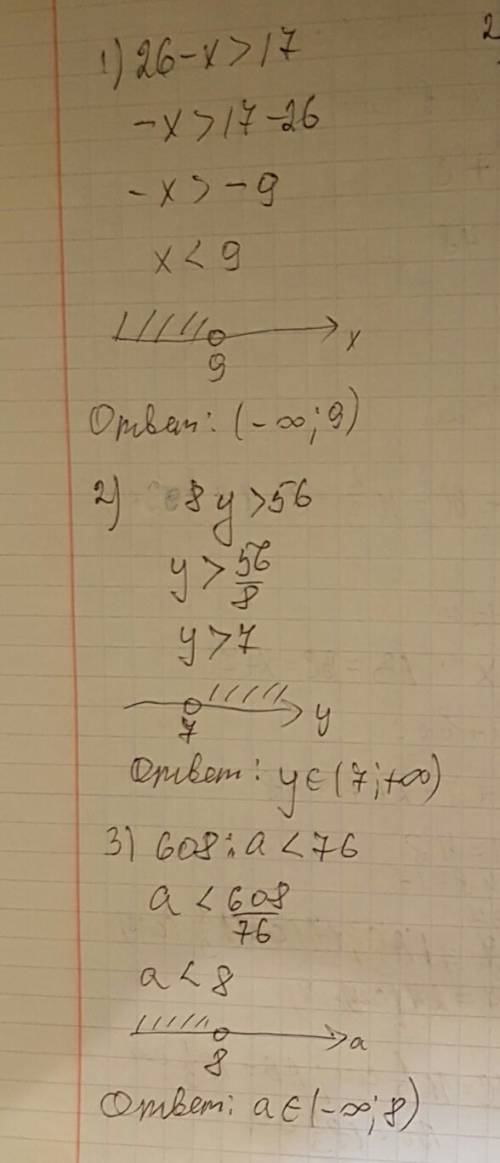 1) 26-x>17
-x>17-26
-x>-9
x<9
9 x
Ответ: (-∞; 9)
2) 8y>56
y>56/8
y>7
7 y
Ответ: y∈(7;+∞)
3) 608:a<76
a<608/76
a<8
8 a
Ответ: a∈(-∞; 8)